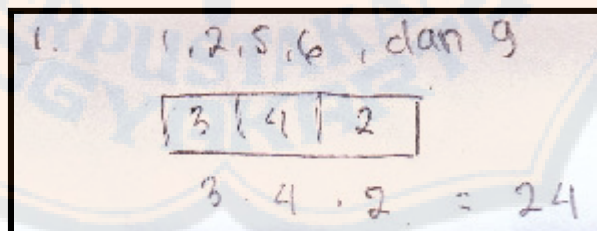 1. 1,2,5,6, dan 9
3 4 2
3 . 4 . 2 = 24